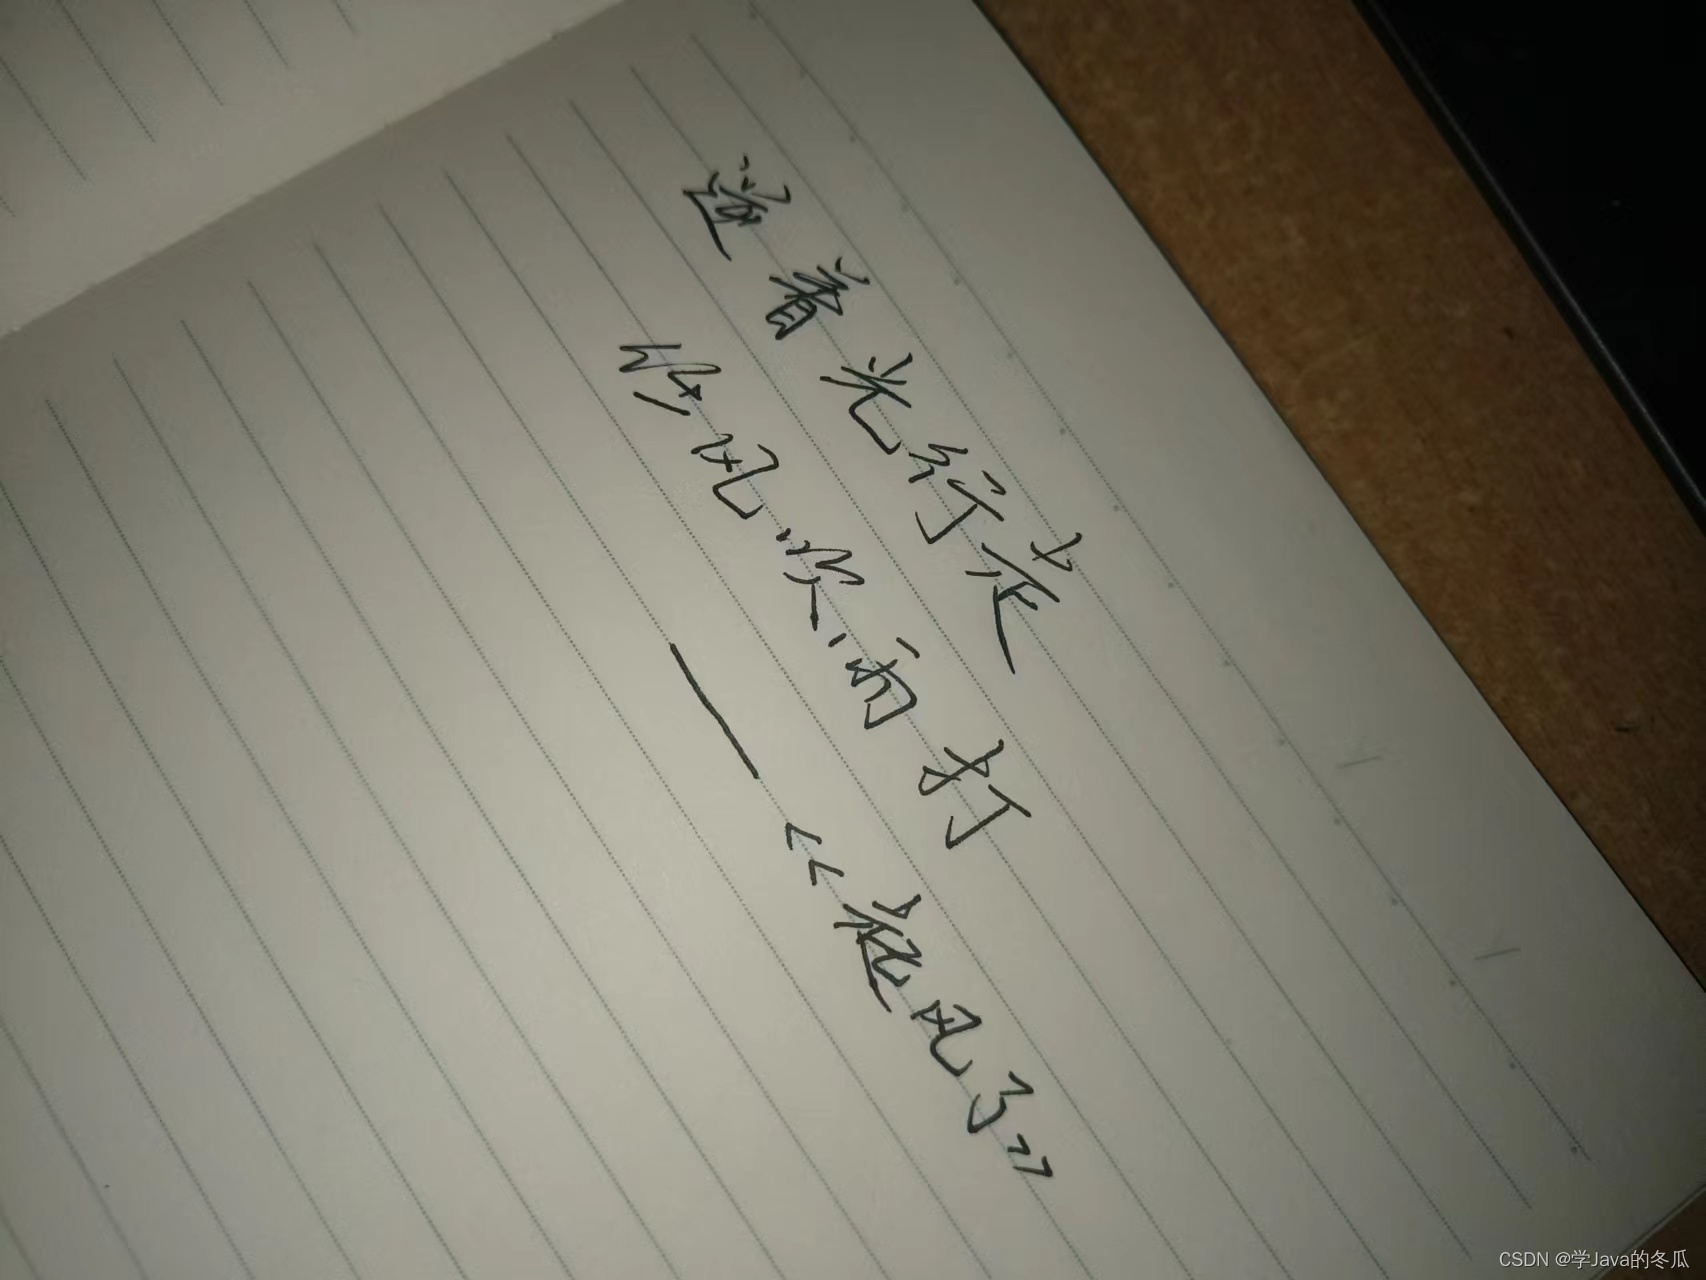 逆着光行走
任风吹雨打
——《起风了》
CSDN @学Java的冬瓜